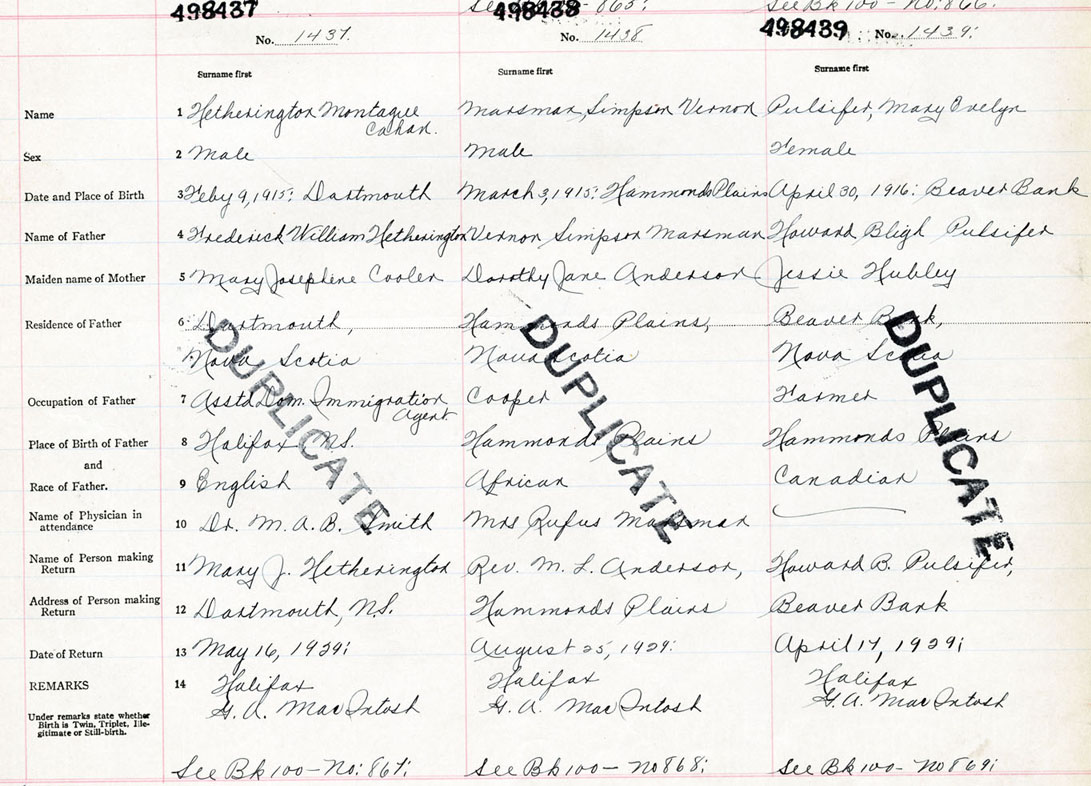 See Bk 100 - No: 866:
498437 498438 498439
No. 1437. No. 1438 No. 1439:
Surname first Surname first Surname first
Name 1 Hetherington Montague Marsman, Simpson Vernon Pulsifer, Mary Evelyn
Cahan.
Sex 2 Male Male Female
Date and Place of Birth 3 Feby 9, 1915: Dartmouth March 3, 1915: Hammonds Plains April 30, 1916: Beaver Bank
Name of Father 4 Frederick William Hetherington Vernon Simpson Marsman Howard Bligh Pulsifer
Maiden name of Mother 5 Mary Josephine Cooler Dorothy Jane Anderson Jessie Hubley
Residence of Father 6 Dartmouth, Hammonds Plains, Beaver Bank,
Nova Scotia Nova Scotia Nova Scotia
Occupation of Father 7 Asstd Dom. Immigration Cooper Farmer
Agent
Place of Birth of Father 8 Halifax NS. Hammonds Plains Hammonds Plains
and
Race of Father. 9 English African Canadian
Name of Physician in
attendance 10 Dr. M. A. B. Smith Mrs Rufus Marsman
Name of Person making
Return 11 Mary J. Hetherington Rev. M. L. Anderson, Howard B. Pulsifer,
Address of Person making
Return 12 Dartmouth, NS. Hammonds Plains Beaver Bank
Date of Return 13 May 16, 1929: August 25, 1929: April 17, 1929:
REMARKS 14 Halifax Halifax Halifax
G. A. MacIntosh G. A. MacIntosh G. A. MacIntosh
Under remarks state whether
Birth is Twin, Triplet, Ille-
gitimate or Still-birth.
See Bk 100 - No: 867: See Bk 100 - No 868: See Bk 100 - No 869:
DUPLICATE DUPLICATE DUPLICATE